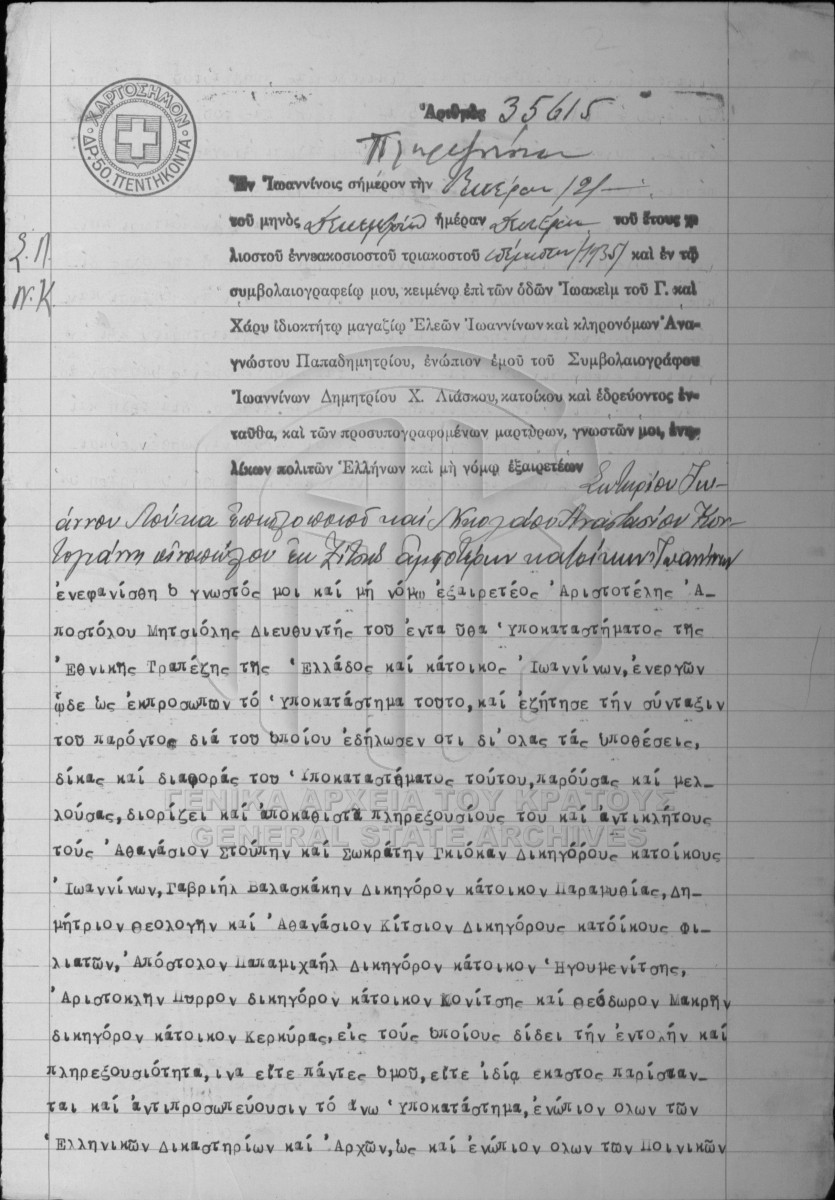 ΧΑΡΤΟΣΗΜΟΝ
ΔΡ. 50. ΠΕΝΤΗΚΟΝΤΑ
Ἀριθμὸς 35615
Πληρεξούσιον
Ἐν Ἰωαννίνοις σήμερον τὴν Δευτέραν /2/
τοῦ μηνὸς Δεκεμβρίου ἡμέραν Δευτέραν τοῦ ἔτους χι
λιοστοῦ ἐννεακοσιοστοῦ τριακοστοῦ πέμπτου /1935/ καὶ ἐν τῷ
συμβολαιογραφείῳ μου, κειμένῳ ἐπὶ τῶν ὁδῶν Ἰωακεὶμ τοῦ Γ. καὶ
Χάρυ ἰδιοκτήτῳ μαγαζίῳ Ἐλεῶν Ἰωαννίνων καὶ κληρονόμων Ἀνα-
γνώστου Παπαδημητρίου, ἐνώπιον ἐμοῦ τοῦ Συμβολαιογράφου
Ἰωαννίνων Δημητρίου Χ. Λιάσκου, κατοίκου καὶ ἑδρεύοντος ἐν-
ταῦθα, καὶ τῶν προσυπογραφομένων μαρτύρων, γνωστῶν μοι, ἐνη-
λίκων πολιτῶν Ἑλλήνων καὶ μὴ νόμῳ ἐξαιρετέων Σωτηρίου Ἰω-
άννου Λούκα καὶ Νικολάου Ἀναστασίου Κον-
τογιάννη ἐκ Ζίτσης ἀμφοτέρων κατοίκων Ἰωαννίνων
ἐνεφανίσθη ὁ γνωστός μοι καί μή νόμῳ ἐξαιρετέος Ἀριστοτέλης Ἀ-
ποστόλου Μητσιόλης Διευθυντής τοῦ ἐντα ῦθα Ὑποκαταστήματος τῆς
Ἐθνικῆς Τραπέζης τῆς Ἑλλάδος καί κάτοικος Ἰωαννίνων, ἐνεργῶν
ᾧδε ὡς ἐκπροσωπῶν τό Ὑποκατάστημα τοῦτο, καί ἐζήτησε τήν σύνταξιν
τοῦ παρόντος διά τοῦ ὁποίου ἐδήλωσεν ὅτι δι' ὅλας τάς ὑποθέσεις,
δίκας καί διαφοράς τοῦ Ὑποκαταστήματος τούτου, παρούσας καί μελ-
λούσας, διορίζει καί ἀποκαθιστᾶ πληρεξουσίους του καί ἀντικλήτους
τούς Ἀθανάσιον Στούπην καί Σωκράτην Γκιόκαν Δικηγόρους κατοίκους
Ἰωαννίνων, Γαβριήλ Βαλασκάκην Δικηγόρον κάτοικον Παραμυθίας, Δη-
μήτριον Θεολογῆν καί Ἀθανάσιον Κίτσιον Δικηγόρους κατοίκους Φι-
λιατῶν, Ἀπόστολον Παπαμιχαήλ Δικηγόρον κάτοικον Ἡγουμενίτσης,
Ἀριστοκλῆν Πύρρον δικηγόρον κάτοικον Κονίτσης καί Θεόδωρον Μακρῆν
δικηγόρον κάτοικον Κερκύρας, εἰς τούς ὁποίους δίδει τήν ἐντολήν καί
πληρεξουσιότητα, ἵνα εἴτε πάντες ὁμοῦ, εἴτε ἰδίᾳ ἕκαστος παρίσταν-
ται καί ἀντιπροσωπεύουσιν τό ἄνω Ὑποκατάστημα, ἐνώπιον ὅλων τῶν
Ἑλληνικῶν Δικαστηρίων καί Ἀρχῶν, ὡς καί ἐνώπιον ὅλων τῶν Ποινικῶν
Σ. Λ.
Ν. Κ
ΓΕΝΙΚΑ ΑΡΧΕΙΑ ΤΟΥ ΚΡΑΤΟΥΣ
GENERAL STATE ARCHIVES